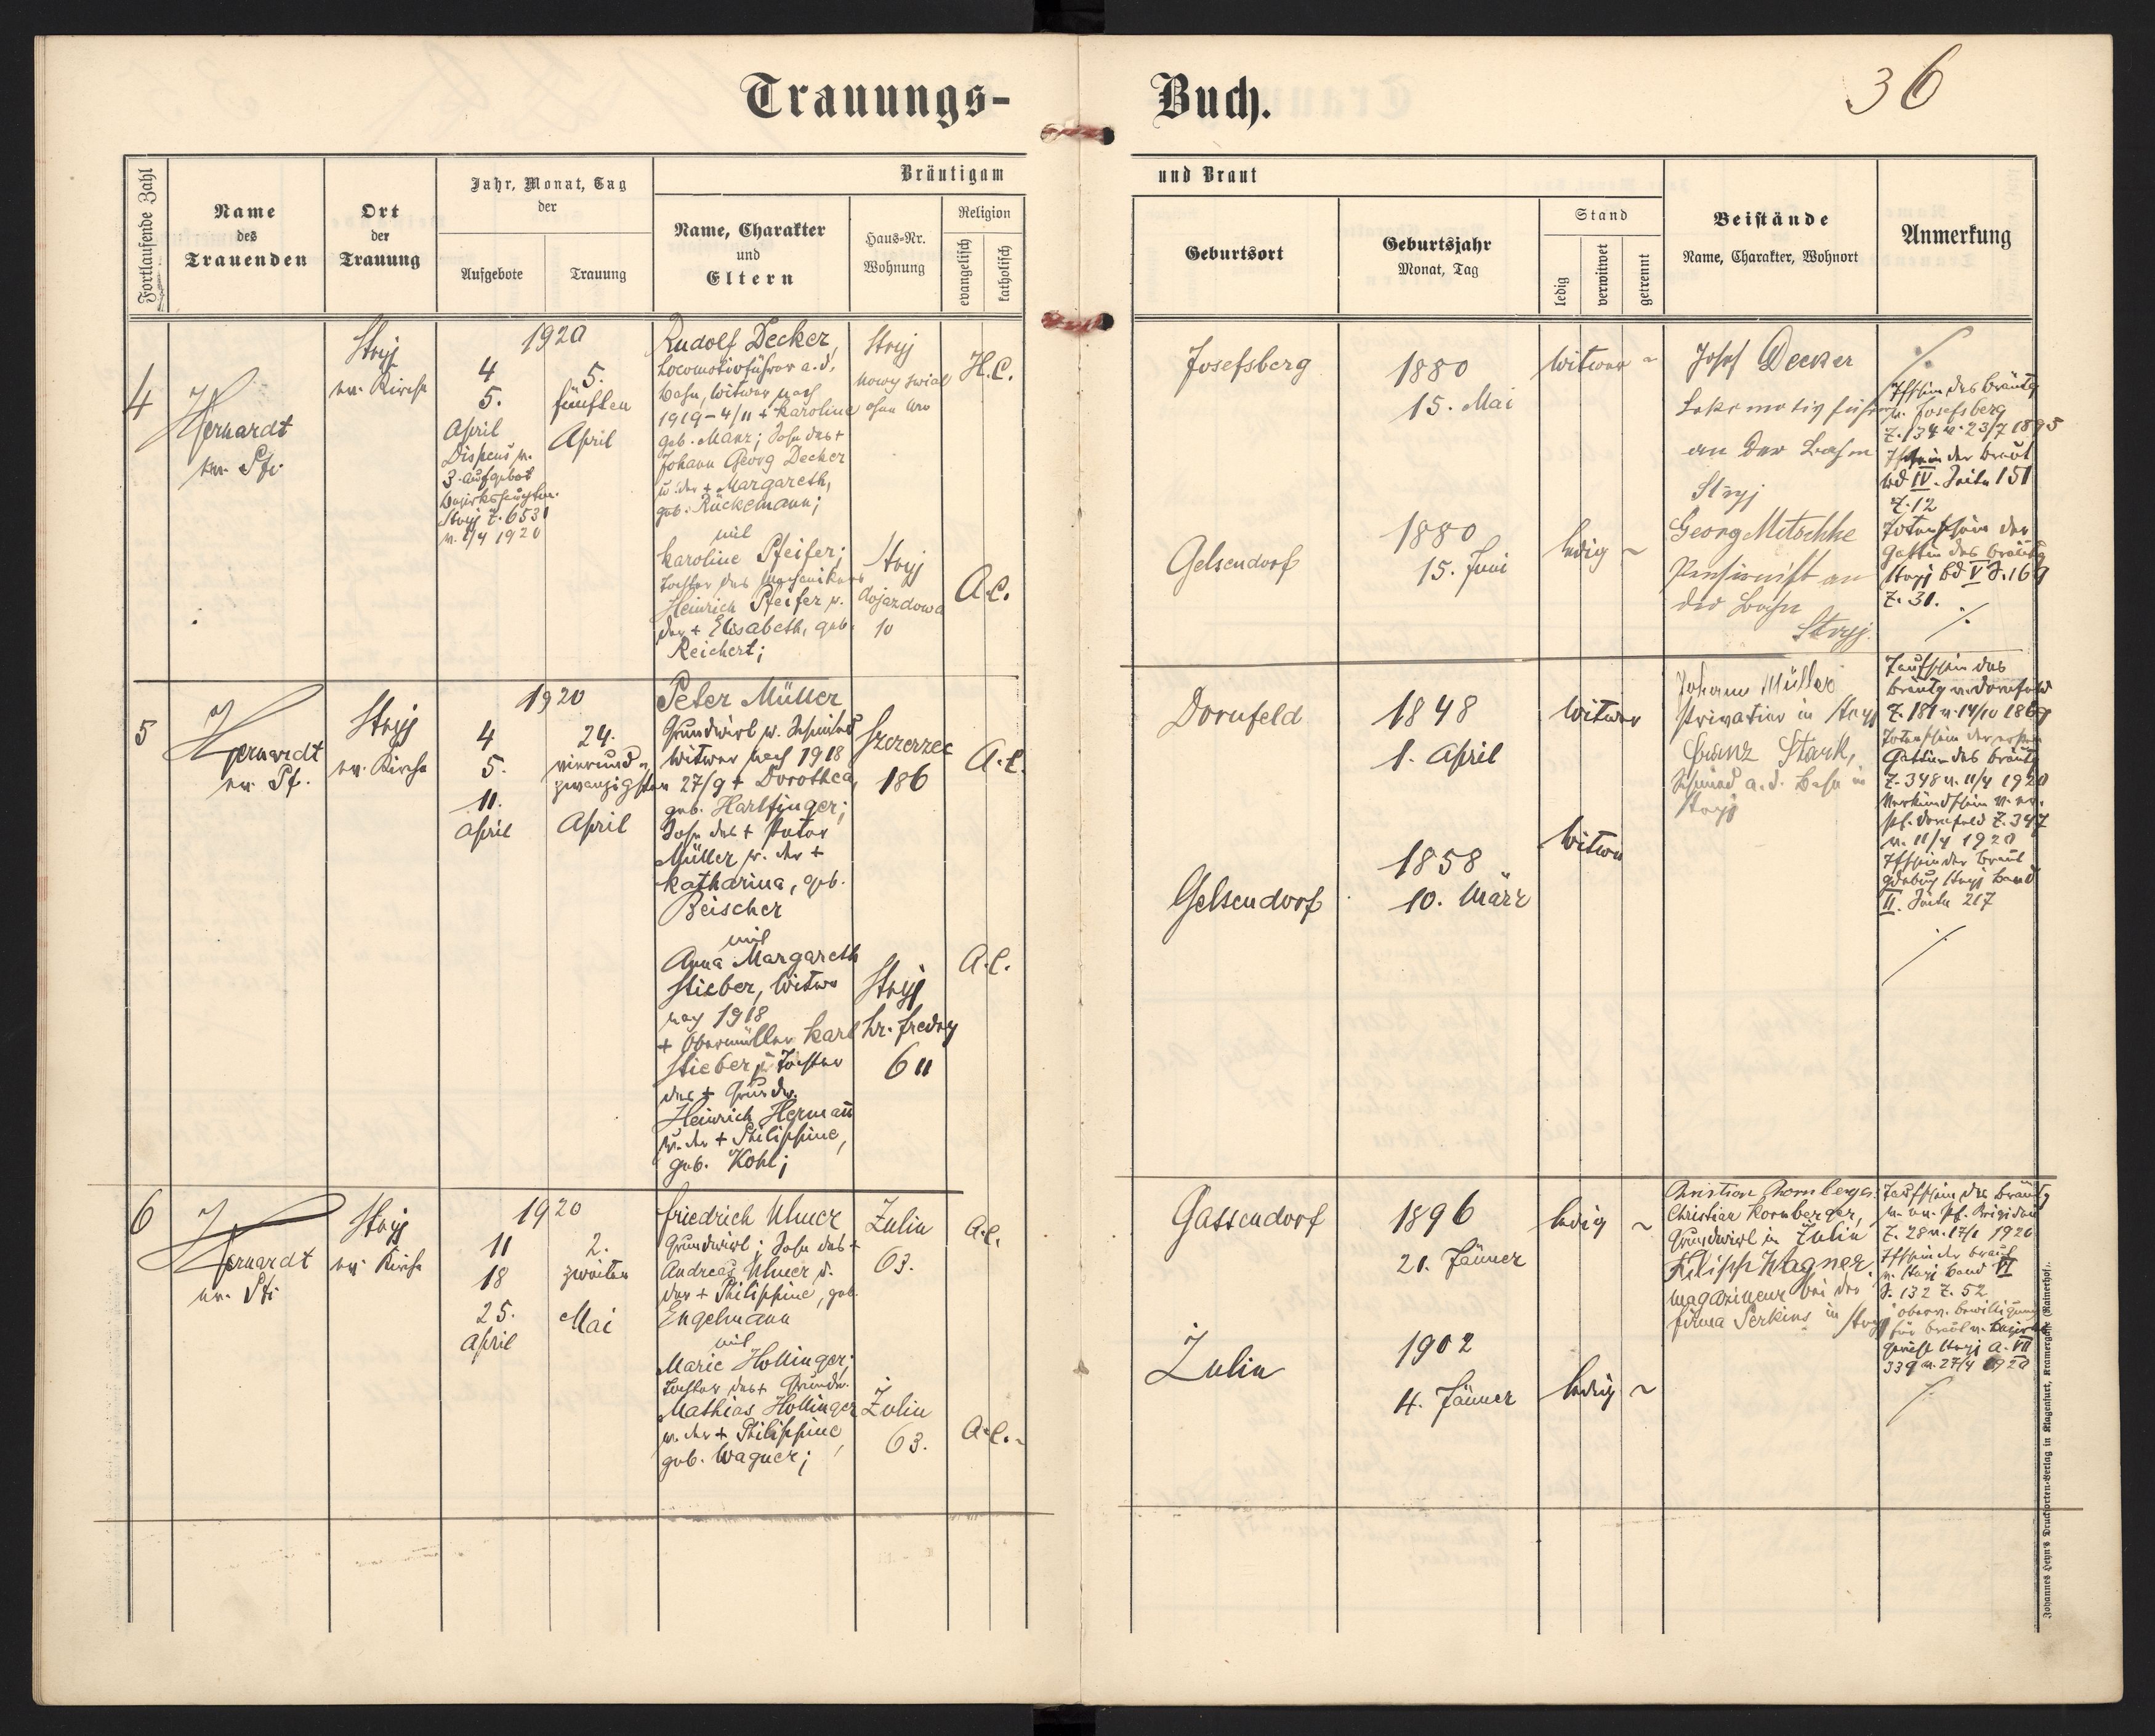 Trauungs-Buch.
36
Fortlaufende Zahl
Name
des
Trauenden
Ort
der
Trauung
Jahr, Monat, Tag
der
Aufgebote
Trauung
Bräutigam und Braut
Name, Charakter
und
Eltern
Haus-Nr.
Wohnung
Religion
evangelisch
katholisch
Geburtsort
Geburtsjahr
Monat, Tag
Stand
ledig
verwitwet
getrennt
Beistände
Name, Charakter, Wohnort
Anmerkung
4
ev. Kirche
Stryj
1920
4
5.
April
Dispens v.
3. Aufgebot
Stryj Z. 6531
1920
5.
fünften
April
Rudolf Decker,
Locomotivführer a. d.
Bahn, Witwer nach
1919 – 4/11 + Karoline
geb. Manz; Sohn des +
Johann Georg Decker
u. der + Margareth,
geb. Rückemann;
mit
Karoline Pfeifer;
Tochter des Mechanikers
Heinrich Pfeifer u.
der + Elisabeth, geb.
Reichert;
Stryj
nowy swiat
H.C.
Stryj
dojazdowa
10
A.C.
Josefsberg
1880
15. Mai
Witwer
Gelsendorf
1880
15. Juni
ledig
Josef Decker
Lokomotivführer
an der Bahn
Stryj
Georg Mitschke
Pensionist an
der Bahn
Stryj
Tfschein des Bräutg
v. Josefsberg
Z. 134 v. 23/7 1895
Tfschein der Braut
Bd IV. Seite 151
Z. 12
Totenschein der
Gattin des Bräutg
Stryj Bd V S. 169
Z. 31.
5
ev. Pf.
Stryj
ev. Kirche
1920
4
5.
11.
April
24.
vierund-
zwanzigsten
April
Peter Müller
Grundwirt u. Schmied
Witwer nach 1918
27/9 + Dorothea,
geb. Hartfinger;
Sohn des + Peter
Müller u. der +
Katharina, geb.
Beischer
mit
Anna Margareth
Stieber, Witwe
nach 1918
+ Obermüller Karl
Stieber; Tochter
des + Grundw.
Heinrich Hermann
u. der + Philippine,
geb. Kohl;
Szczerzec
186
A.C.
Stryj
hr. Fredry
611
A.C.
Dornfeld
1848
1. April
Witwer
Gelsendorf
1858
10. März
Witwe
Johann Müller
Privatier in Stryj
Franz Stark,
Schmied a. d. Bahn in
Stryj
Taufschein des
Bräutg v. Dornfeld
Z. 181 v. 14/10 1869
Totenschein der ersten
Gattin des Bräutg
Z. 348 v. 11/4 1920
Verkündschein v. ev.
Pf. Dornfeld Z. 347
v. 11/4 1920
Tfschein der Braut
Stryj Band
II. Seite 217
6
Stryj
ev. Kirche
1920
11
18
25.
April
2.
zweiten
Mai
Friedrich Ulmer
Grundwirt; Sohn des +
Andreas Ulmer u.
der + Philippine, geb.
Engelmann
mit
Marie Hollinger;
Tochter des + Grundw.
Mathias Hollinger
u. der + Philippine,
geb. Wagner;
Zulin
63.
A.C.
Żulin
63.
A.C.
Gassendorf
1896
21. Jänner
ledig
Żulin
1902
4. Jänner
ledig
Christian Kornberger,
Grundwirt in Zulin
Filipp Wagner
Magazineur bei der
Firma Perkins in Stryj
Taufschein des Bräutg
v. ev. Pf. Brigidau
Z. 28 v. 17/1 1920
Tfschein der Braut
v. Stryj Band VI
S. 132 Z. 52
oberv. Bewilligung
für Braut v. Bezirks
gericht Stryj A. VII
339 v. 27/4 1920
Johannes Heyn's Drucksorten-Verlag in Klagenfurt, Kramergasse (Rainerhof).